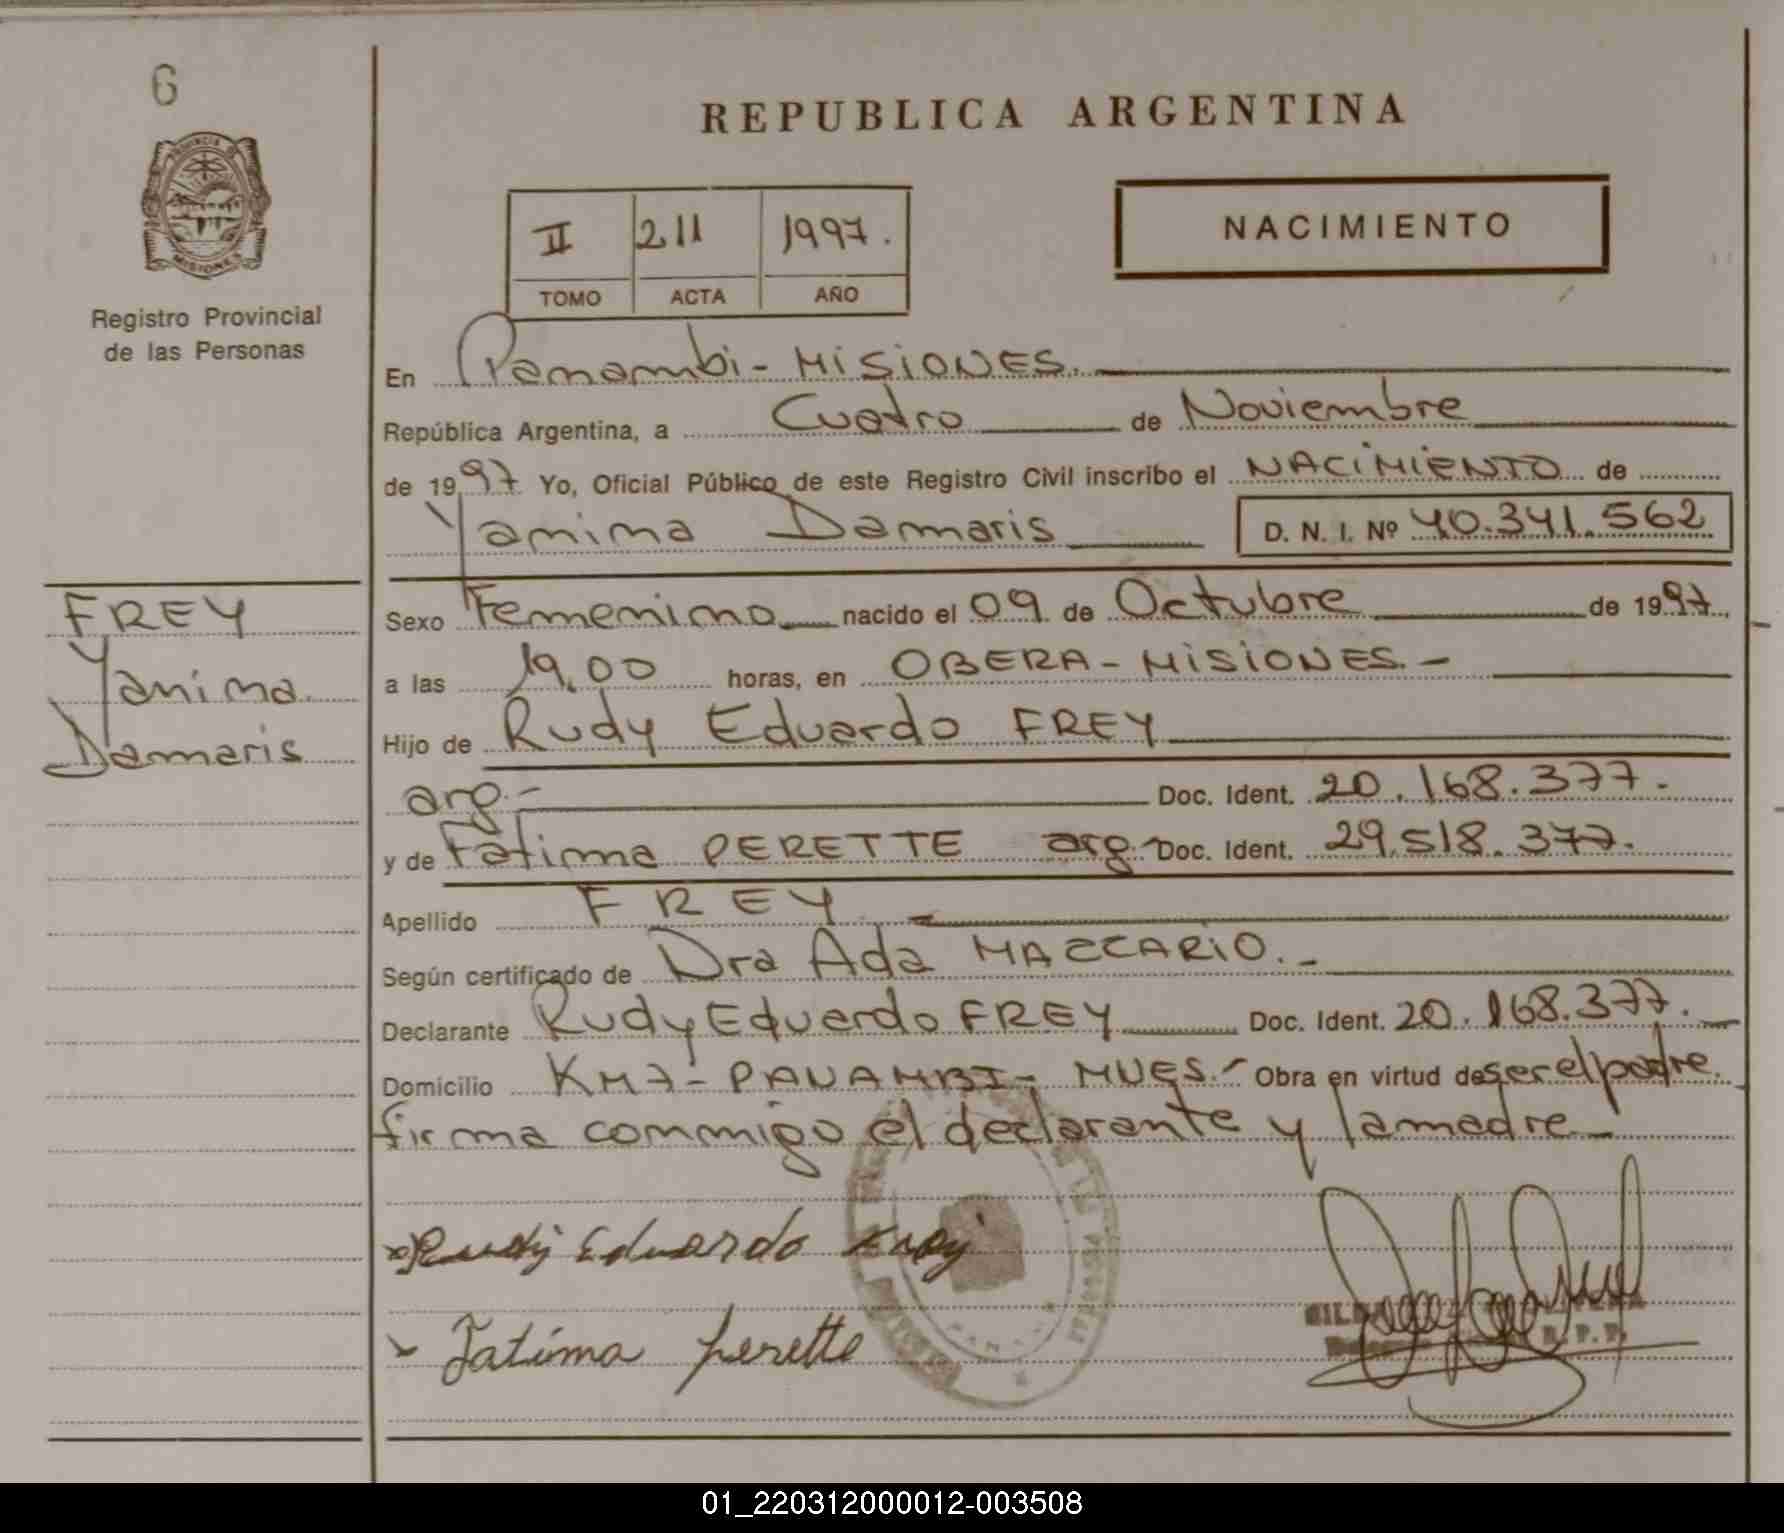 6
PROVINCIA DE
MISIONES
Registro Provincial
de las Personas
FREY
Yanina
Damaris
REPUBLICA ARGENTINA
II 211 1997.
TOMO ACTA AÑO
NACIMIENTO
En Panambi - MISIONES.
República Argentina, a Cuatro de Noviembre
de 1997 Yo, Oficial Público de este Registro Civil inscribo el NACIMIENTO de
Yanina Damaris D. N. I. Nº 40.341.562
Sexo Femenino nacido el 09 de Octubre de 1997
a las 19,00 horas, en OBERA - MISIONES. -
Hijo de Rudy Eduardo FREY
arg.- Doc. Ident. 20.168.377.
y de Fatima PERETTE arg.- Doc. Ident. 29.518.377.
Apellido FREY
Según certificado de Dra Ada MAZZARIO.-
Declarante Rudy Eduardo FREY Doc. Ident. 20.168.377.
Domicilio KM7 - PANAMBI - MNES.- Obra en virtud de ser el padre.
firma conmigo el declarante y la madre
Rudy Eduardo Frey
Fatima perette
R. P. P.
01_220312000012-003508